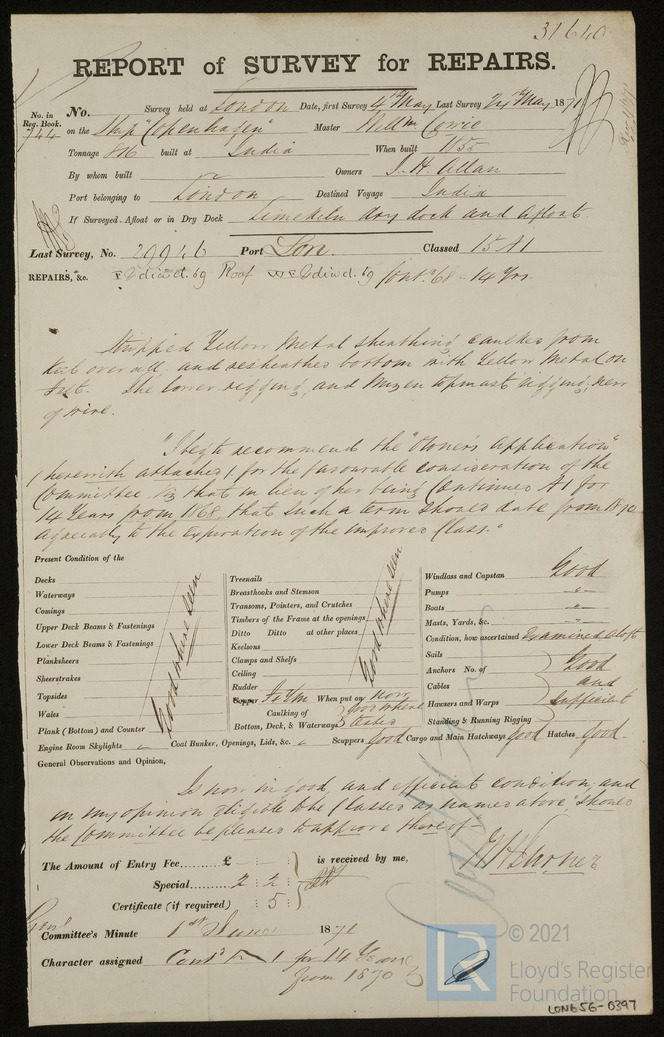 31640
REPORT of SURVEY for REPAIRS.
No. in Reg. Book. 744
No. Survey held at London Date, first Survey 4th May Last Survey 24th May 1871
on the Ship "Copenhagen" Master Willm Cowie
Tonnage 876 built at India When built 1855
By whom built Owners J. H. Allan
Port belonging to London Destined Voyage India
If Surveyed Afloat or in Dry Dock Limekiln dry dock and afloat.
Last Survey, No. 29946 Port Lon. Classed 15 A1
REPAIRS, &c. Cont. 68 - 14 Yrs.
Stripped Yellow Metal sheathing caulked from
Keel over all and resheathed bottom with Yellow Metal on
felt. The lower rigging, and Mizen topmast rigging, new
of wire.
"I beg to recommend the "Owner's Application"
(herewith attached) for the favourable consideration of the
Committee. Viz that in lieu of her being Continued A1 for
14 Years from 1868, that such a term should date from 1870
agreeably to the expiration of the improved Class."
Present Condition of the
Decks
Waterways
Comings
Upper Deck Beams & Fastenings
Lower Deck Beams & Fastenings
Planksheers
Sheerstrakes
Topsides
Wales
Plank (Bottom) and Counter
Good where seen
Treenails
Breasthooks and Stemson
Transoms, Pointers, and Crutches
Timbers of the Frame at the openings
Ditto Ditto at other places
Keelsons
Clamps and Shelfs
Ceiling
Rudder
Good where seen
Copper Y/M When put on now
Caulking of Bottom, Deck, & Waterways Good where tested
Windlass and Capstan Good
Pumps
Boats
Masts, Yards, &c.
Condition, how ascertained Examined Aloft
Sails
Anchors No. of
Cables
Hawsers and Warps
Standing & Running Rigging
Good
and
Sufficient
Engine Room Skylights Coal Bunker, Openings, Lids, &c. Scuppers Good Cargo and Main Hatchways Good Hatches Good.
General Observations and Opinion,
Is now in good, and efficient condition, and
in my opinion eligible to be Classed as named above, should
the Committee be pleased to approve thereof -
The Amount of Entry Fee......... £ is received by me,
Special......... 2 : 2 :
Certificate (if required) : 5 :
Committee's Minute 1st June 1871
Character assigned Contd A 1 for 14 Years
from 1870
LR
© 2021
Lloyd's Register
Foundation
LON656-0397